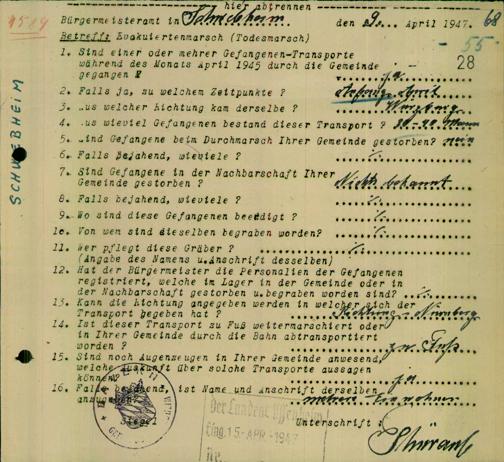 hier abtrennen
4519
Bürgermeisteramt in Schwebheim den 9. April 1947. 68
Betreff: Evakuiertenmarsch (Todesmarsch)
55
28
1. Sind einer oder mehrer Gefangenen-Transporte
während des Monats April 1945 durch die Gemeinde
gegangen ? ja
2. Falls ja, zu welchem Zeitpunkte ? Anfang April
3. Aus welcher Richtung kam derselbe ?
4. Aus wieviel Gefangenen bestand dieser Transport ? 30-40 Mann
5. Sind Gefangene beim Durchmarsch Ihrer Gemeinde gestorben? nein
6. Falls bejahend, wieviele ? ./.
7. Sind Gefangene in der Nachbarschaft Ihrer
Gemeinde gestorben ? Nicht bekannt
8. Falls bejahend, wieviele ? ./.
9. Wo sind diese Gefangenen beedigt ? ./.
10. Von wem sind dieselben begraben worden? ./.
11. Wer pflegt diese Gräber ? ./.
(Angabe des Namens u.Anschrift desselben)
12. Hat der Bürgermeister die Personalien der Gefangenen
registriert, welche im Lager in der Gemeinde oder in
der Nachbarschaft gestorben u.begraben worden sind? ./.
13. Kann die Richtung angegeben werden in welcher sich der
Transport begeben hat ? Richtung - Nürnberg
14. Ist dieser Transport zu Fuß weitermarschiert oder
in Ihrer Gemeinde durch die Bahn abtransportiert
worden ? zu Fuß
15. Sind noch Augenzeugen in Ihrer Gemeinde anwesend,
welche Auskunft über solche Transporte aussagen
können? ja
16. Falls bejahend, ist Name und Anschrift derselben
mehrere Einwohner
Siegel
Unterschrift :
Der Landrat Uffenheim
Eing. 15. APR. 1947
Nr.
SCHWEBHEIM